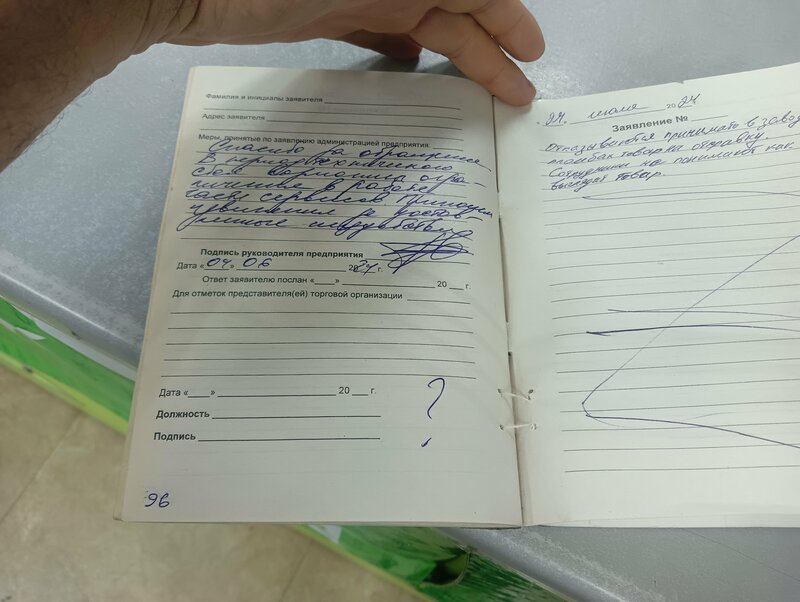 Фамилия и инициалы заявителя
Адрес заявителя
Меры, принятые по заявлению администрацией предприятия:
Спасибо за обращение.
В период технического
сбоя возможна огра-
ничение в работе
части сервисов. Приносим
извинения за достав-
ленные неудобства
Подпись руководителя предприятия
Дата «04» 06 2024 г.
Ответ заявителю послан «___» 20 г.
Для отметок представителя(ей) торговой организации
Дата «___» 20 г.
Должность
Подпись
?
96
24. июля 2024
Заявление №
Отказываются принимать в завод
пломбах товар на отправку.
Сотрудники не понимают как
выглядит товар.